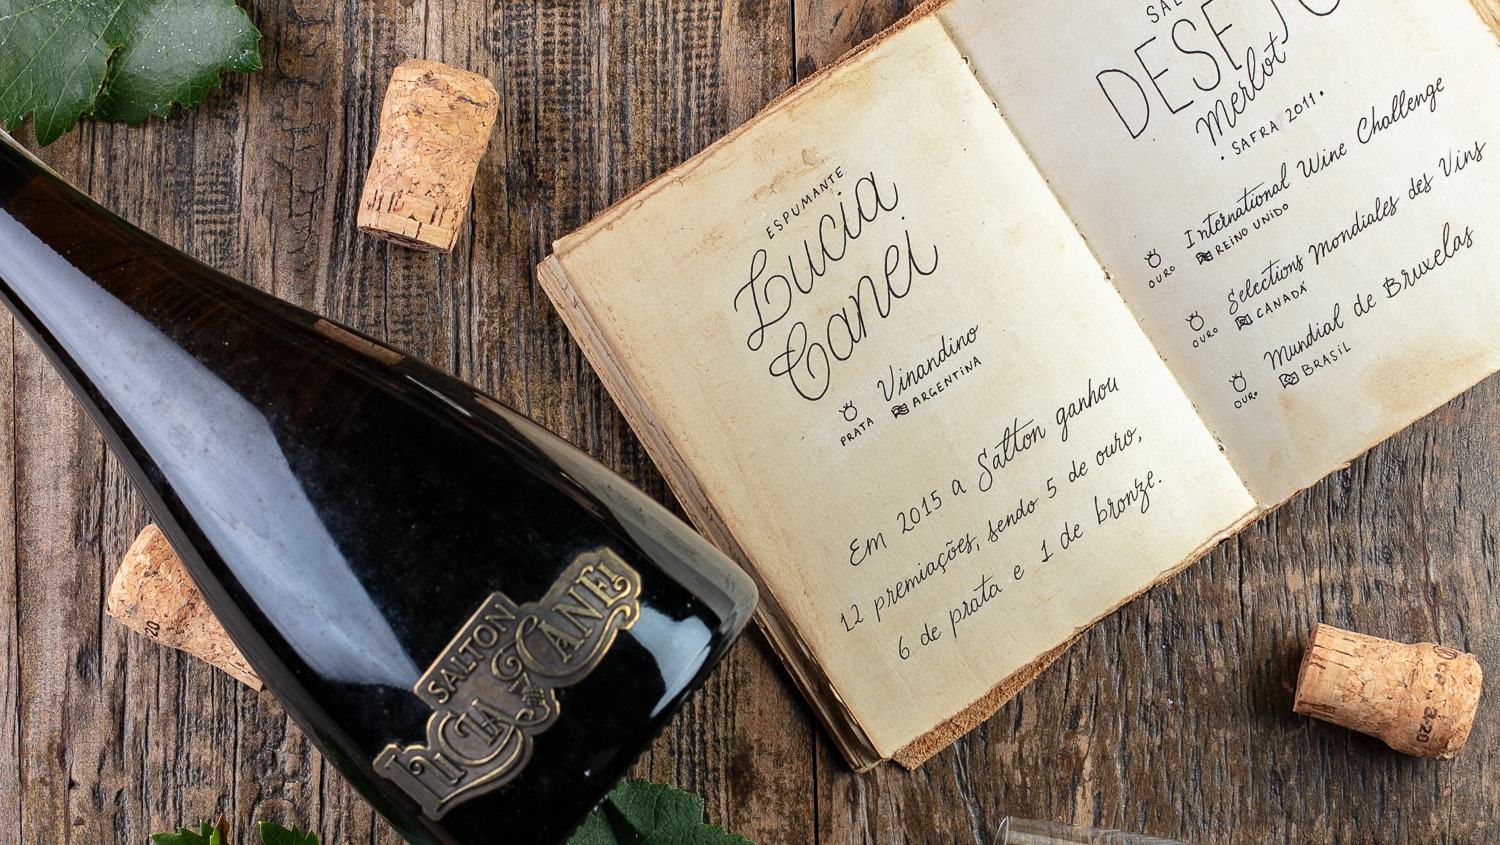 ESPUMANTE
Lucia
Canei
PRATA
Vinandino
ARGENTINA
Em 2015 a Salton ganhou
12 premiações, sendo 5 de ouro,
6 de prata e 1 de bronze.
Merlot
• SAFRA 2011 •
OURO
International Wine Challenge
REINO UNIDO
OURO
Selections Mondiales des Vins
CANADÁ
OURO
Mundial de Bruxelas
BRASIL
SALTON
LUCIA
CANEI
20
3:20